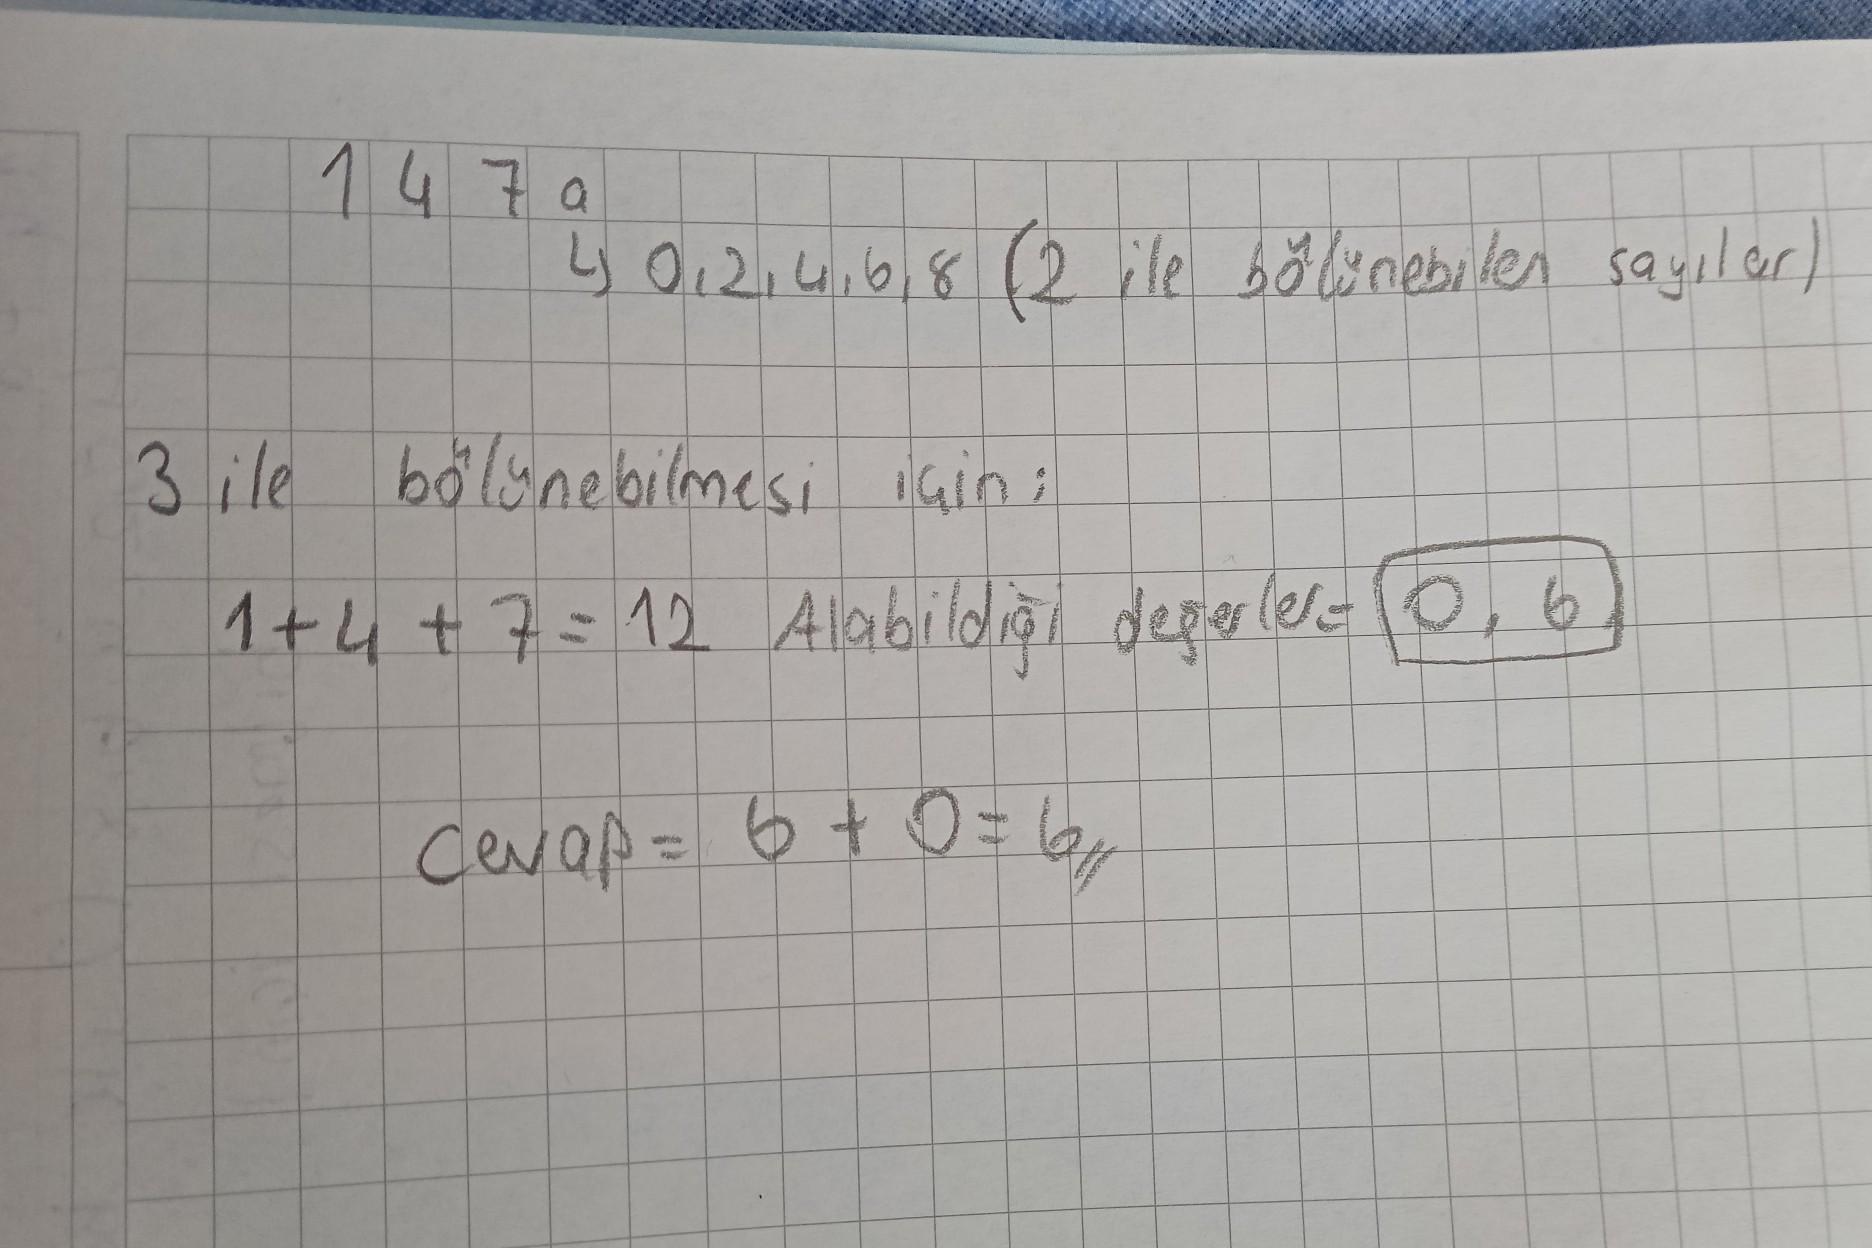 147a
↳ 0,2,4,6,8 (2 ile bölünebilen sayılar)
3 ile bölünebilmesi için:
1+4+7=12 Alabildiği değerler= 0, 6
Cevap= 6+0=6//